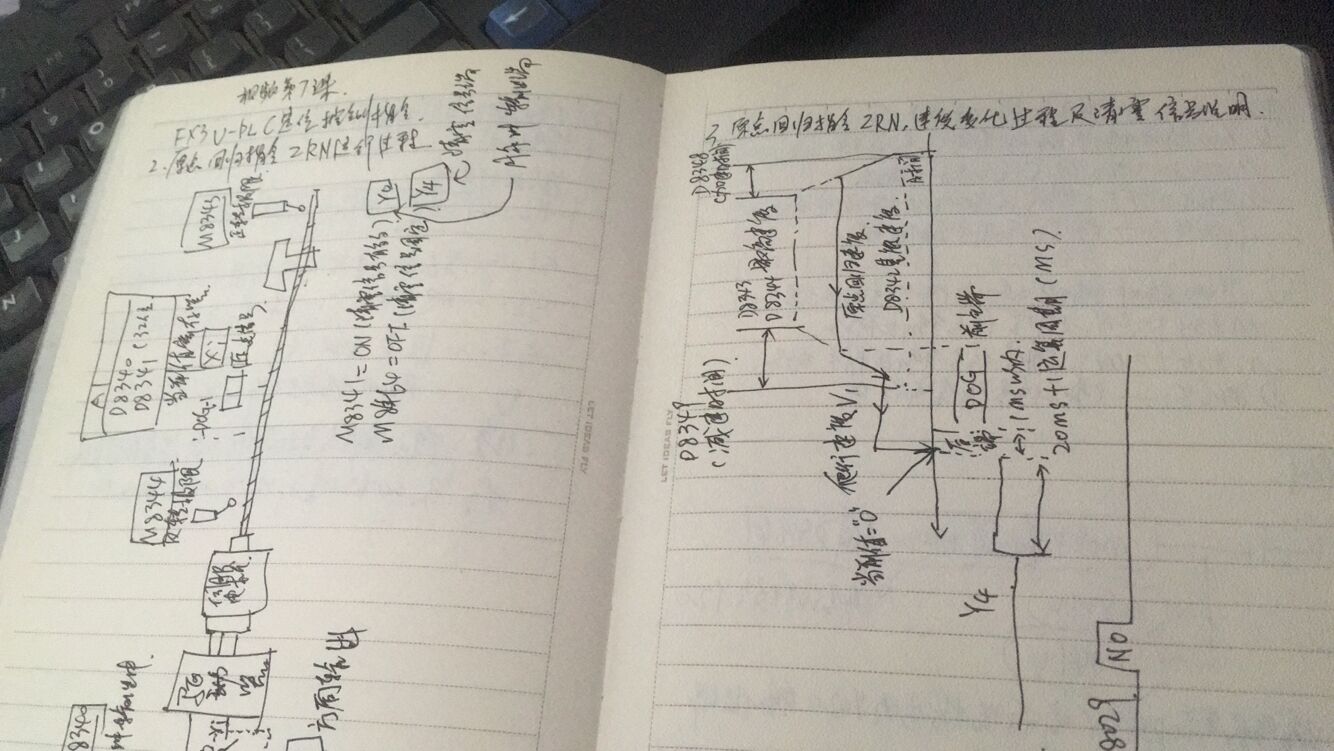 视频第7课.
FX3U-PLC定位控制指令.
2.原点回归指令ZRN运行过程
M8343
正转极限
Y0
Y4
清零信号输
M8341=ON(清零信号输
M8464=OFF(清零信号固定
A
D8340
D8341(32位
当前值寄存器
X1
DOG-1
M8344
反转极限
伺服
驱动
方向输出
8340
3.原点回归指令ZRN,速度变化过程及清零信号说明.
D8348
(加速时间)
D8343
D8344 最高速度
原点回归速度
D8342基底速度
D8349
(减速时间)
爬行速度V1
当前值="0"
DOG
前端
后端
1ms以内
20ms+1运算周期(ms)
Y4
ON
LET IDEAS FLY
LET IDEAS FLY